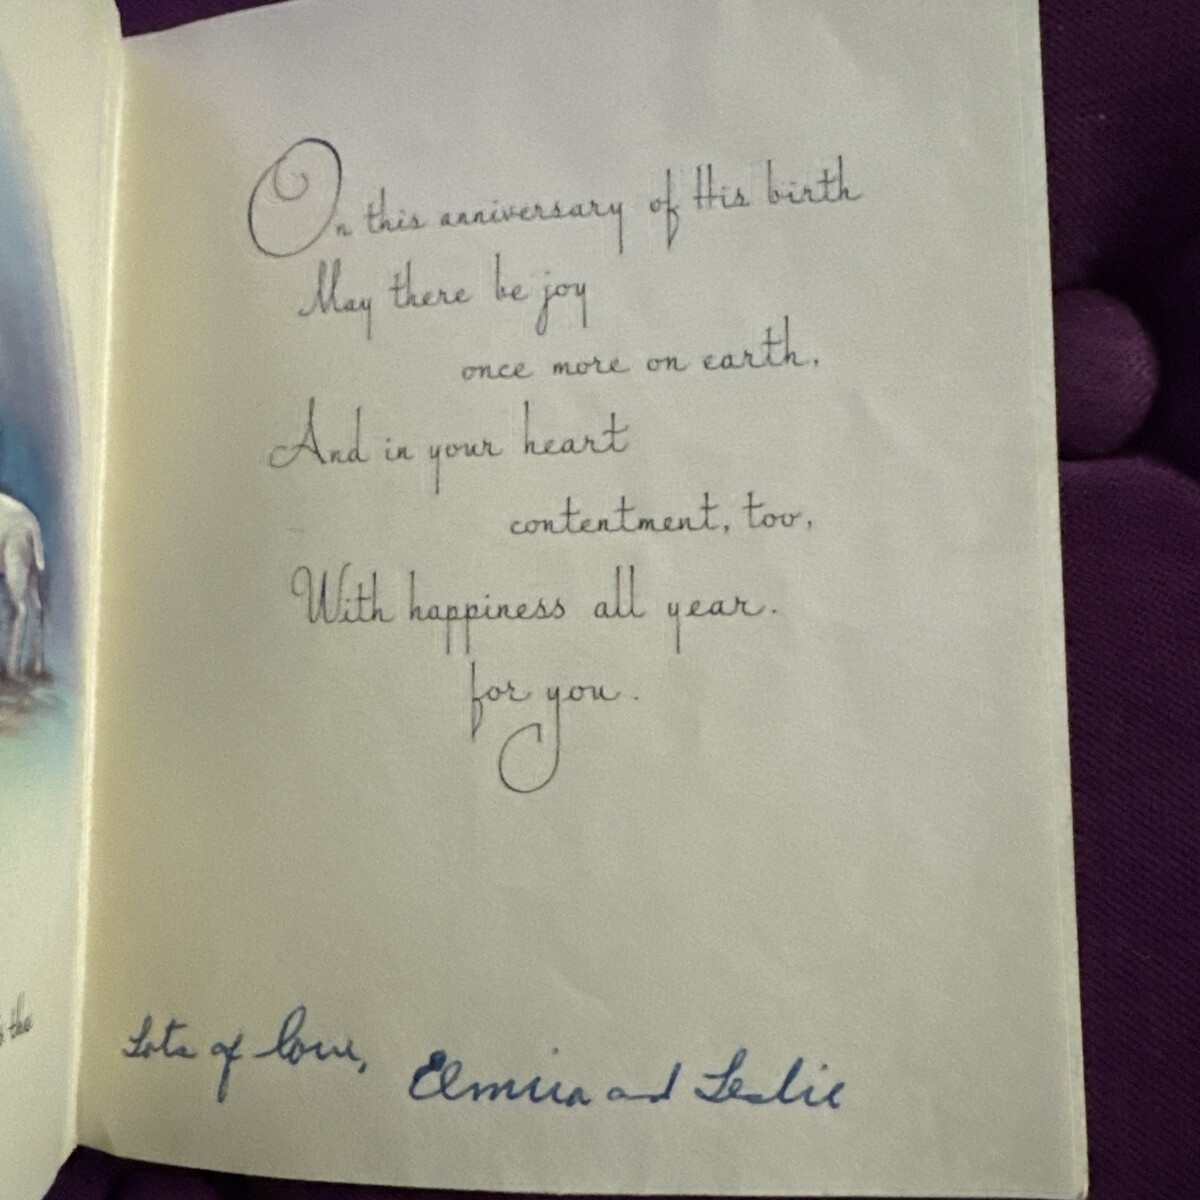 On this anniversary of His birth
May there be joy
once more on earth,
And in your heart
contentment, too,
With happiness all year
for you.
the
Lots of love, Elmira and Leslie